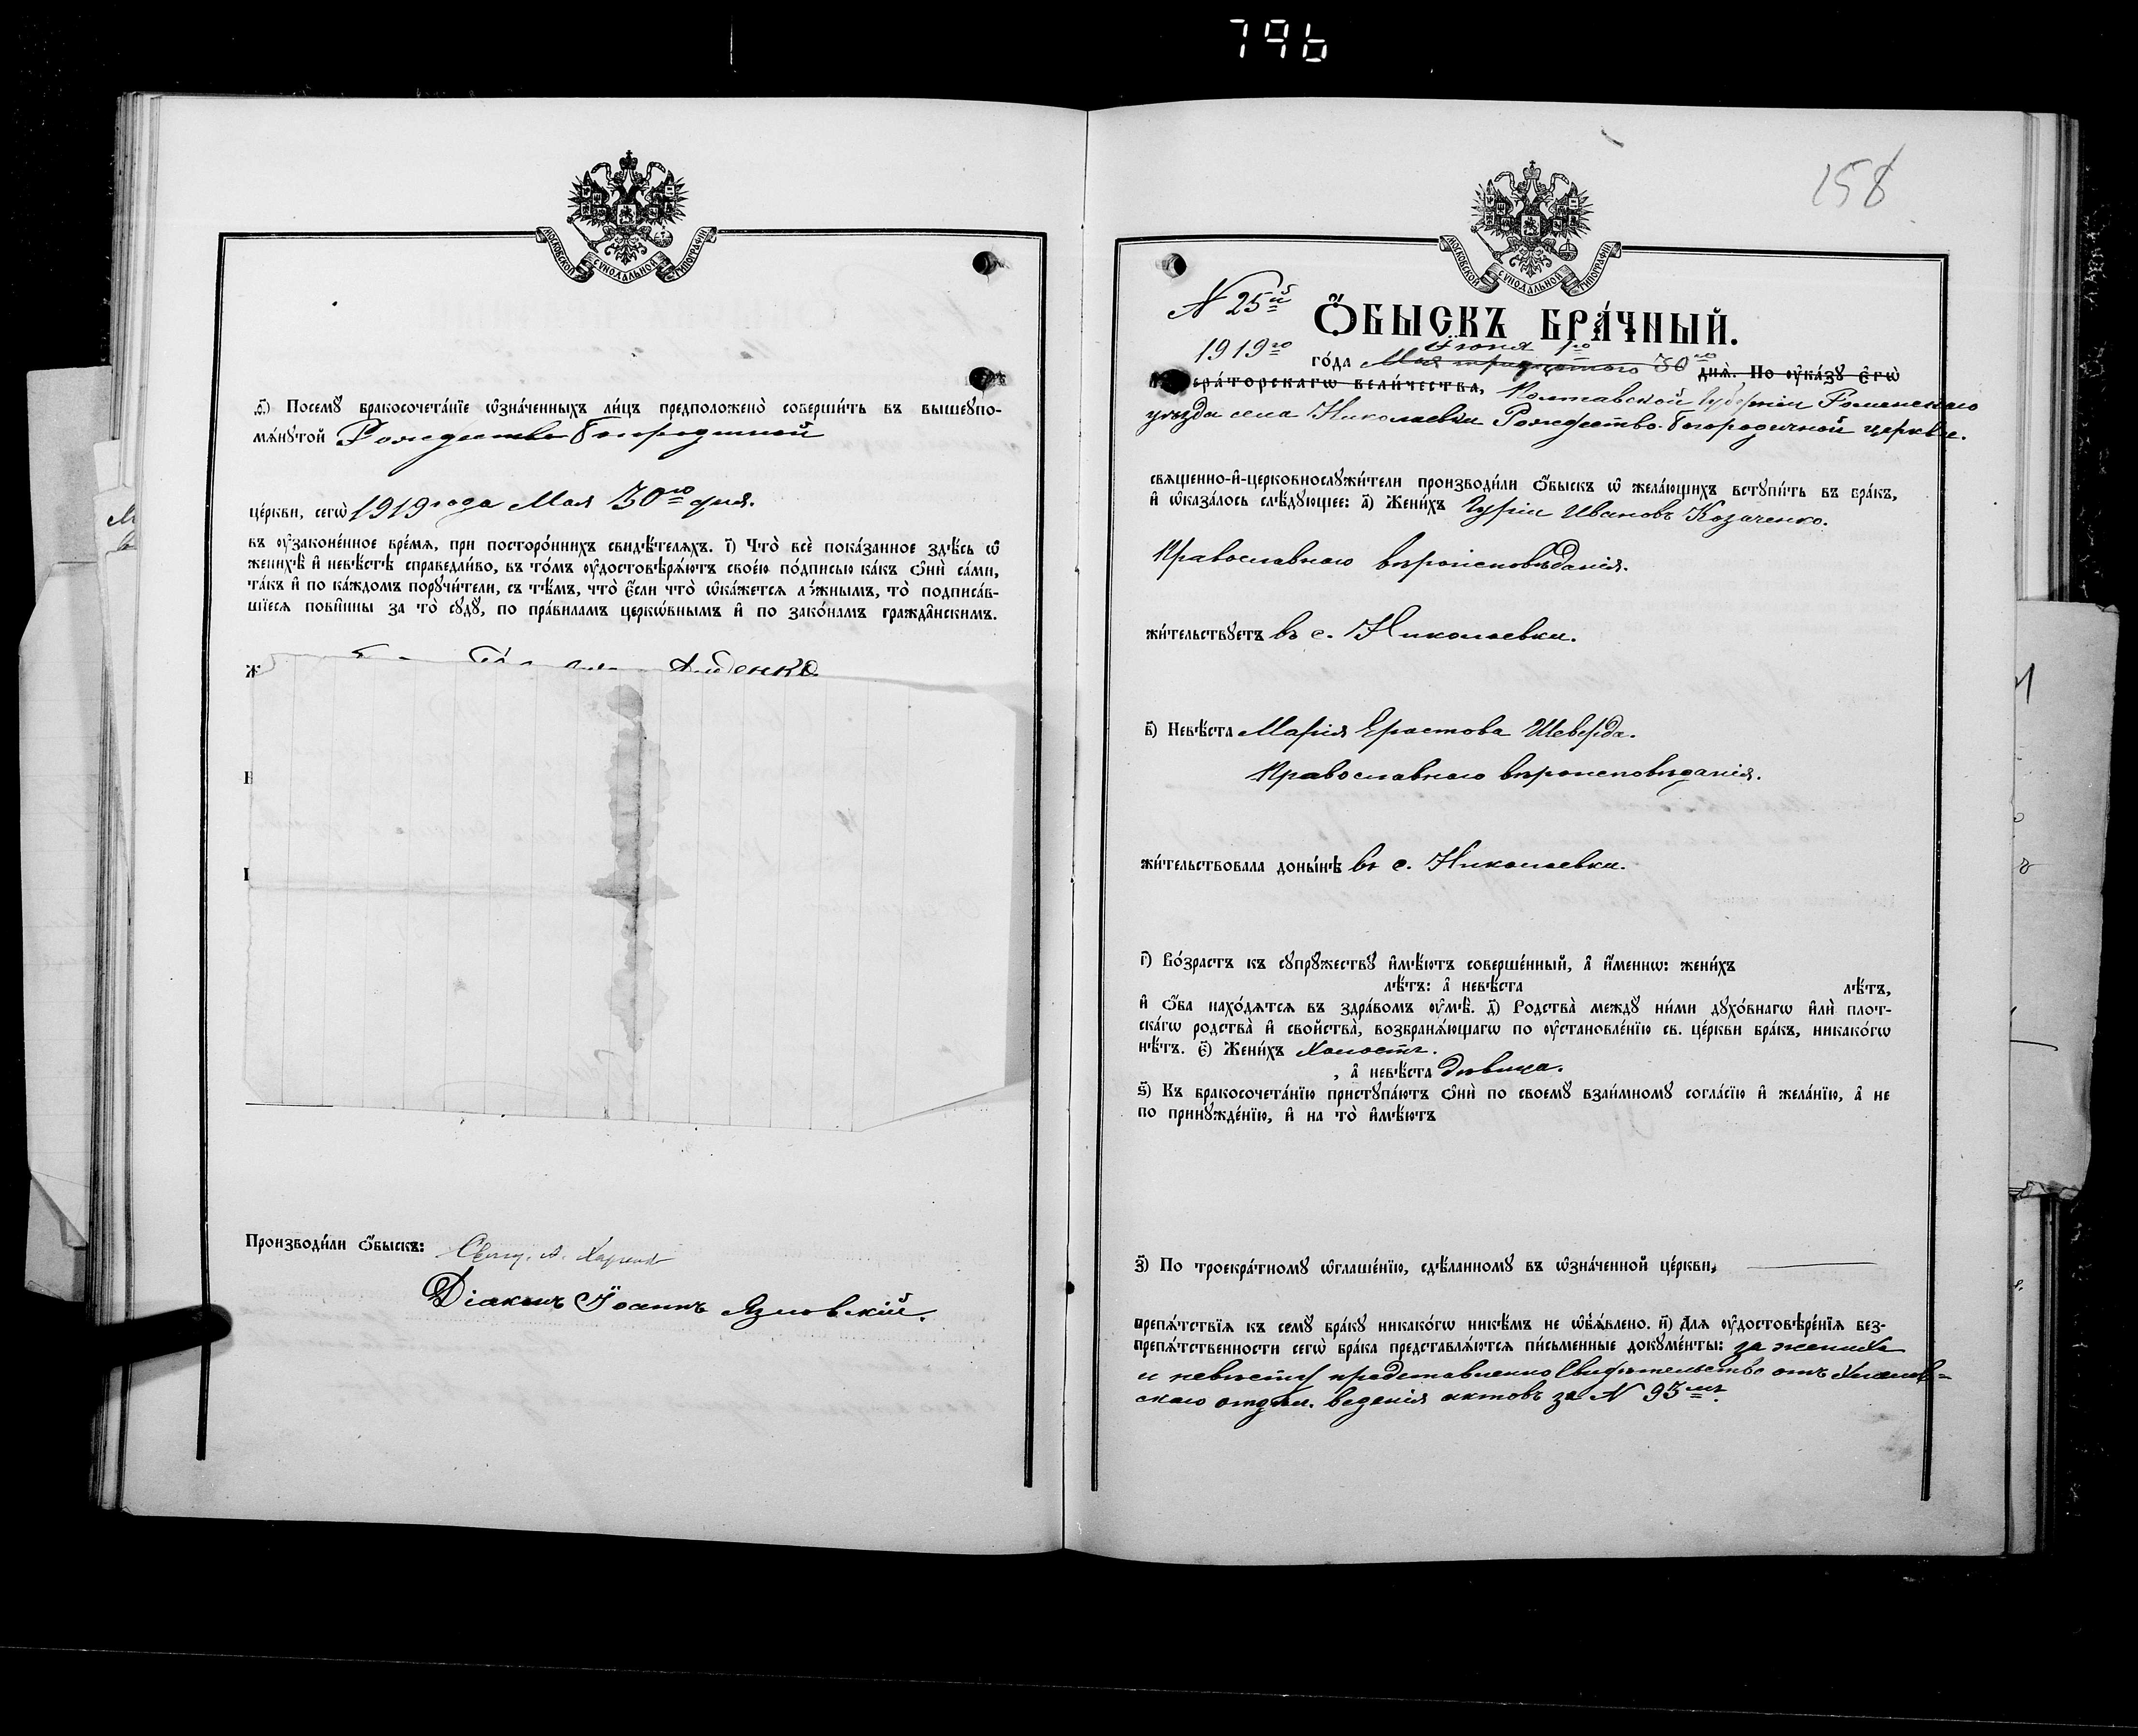 796
МОСКОВСКОЙ СѴНОДАЛЬНОЙ ТИПОГРАФІИ
ѳ҃) Посемꙋ̀ бракосочета́нїе ѡ҆зна́ченныхъ ли́цъ предположенѡ̀ соверши́ть въ вышеꙋпо-
мѧ́нꙋтой Рождество Богородичной
це́ркви, сегѡ̀ 1919 года Мая 30го дня.
въ ᲂу҆законе́нное вре́мѧ, при посторо́ннихъ свидѣ́телѧхъ. і҃) Что̀ всѐ пока́занное здѣ́сь ѡ҆
женихѣ̀ и҆ невѣ́стѣ справедли́во, въ то́мъ ᲂу҆достовѣрѧ́ютъ свое́ю по́дписью ка́къ ѻ҆нѝ са́ми,
та́къ и҆ по ка́ждомъ порꙋчи́тели, съ тѣ́мъ, что̀ є҆́сли что̀ ѡ҆ка́жетсѧ ло́жнымъ, то̀ подписа́в-
шїесѧ пови́нны за то̀ сꙋдꙋ̀, по пра́виламъ церко́внымъ и҆ по зако́намъ гражда́нскимъ.
Ж
Производи́ли ѻ҆́быскъ: Свящ. А.
Діаконъ Іоаннъ Язловскій.
158
МОСКОВСКОЙ СѴНОДАЛЬНОЙ ТИПОГРАФІИ
N 25й
Ѻ҆́БЫСКЪ БРА́ЧНЫЙ.
Іюня 1го
1919го го́да Мая тридцатого 30го днѧ̀. По ᲂу҆ка́зꙋ Є҆гѡ̀
ера́торскагѡ вели́чества, Полтавской губерніи Роменскаго
уѣзда села Николаевки Рождество-Богородичной церкви.
свѧщенно-и҆-церковнослꙋжи́тели производи́ли ѻ҆́быскъ ѡ҆ жела́ющихъ встꙋпи́ть въ бра́къ,
и҆ ѡ҆каза́лось слѣ́дꙋющее: а҃) Жени́хъ Гурій Ивановъ Козаченко.
Православнаго вѣроисповѣданія.
жи́тельствꙋетъ въ с. Николаевки.
в҃) Невѣ́ста Марія Ерастова Шеверда.
Православнаго вѣроисповѣданія.
жи́тельствовала доны́нѣ въ с. Николаевки.
г҃) Во́зрастъ къ сꙋпрꙋ́жествꙋ и҆мѣ́ютъ соверше́нный, а҆ и҆́меннѡ: жени́хъ
лѣ́тъ: а҆ невѣ́ста лѣ́тъ,
и҆ ѻ҆́ба нахо́дѧтсѧ въ здра́вомъ ᲂу҆мѣ̀. д҃) Родства̀ междꙋ̀ ни́ми дꙋхо́внагѡ и҆лѝ плот-
ска́гѡ родства̀ и҆ свойства̀, возбранѧ́ющагѡ по ᲂу҆становле́нїю св. це́ркви бра́къ, никако́гѡ
нѣ́тъ. є҃) Жени́хъ холостъ.
, а҆ невѣ́ста дѣвица.
ѕ҃) Къ бракосочета́нїю пристꙋпа́ютъ ѻ҆нѝ по своемꙋ̀ взаи́мномꙋ согла́сїю и҆ жела́нїю, а҆ не
по принꙋжде́нїю, и҆ на то̀ и҆мѣ́ютъ
з҃) По троекра́тномꙋ ѡ҆глаше́нїю, сдѣ́ланномꙋ въ ѡ҆зна́ченной це́ркви,
препѧ́тствїѧ къ семꙋ̀ бра́кꙋ никако́гѡ никѣ́мъ не ѡ҆б̾ѧ́влено. и҃) Длѧ ᲂу҆достовѣре́нїѧ без-
препѧ́тственности сегѡ̀ бра́ка представлѧ́ютсѧ пи́сьменные докꙋме́нты: за жениха
и невѣсту представленно Свидѣтельство отъ
скаго отдѣл. веденія актовъ за N 93мъ.